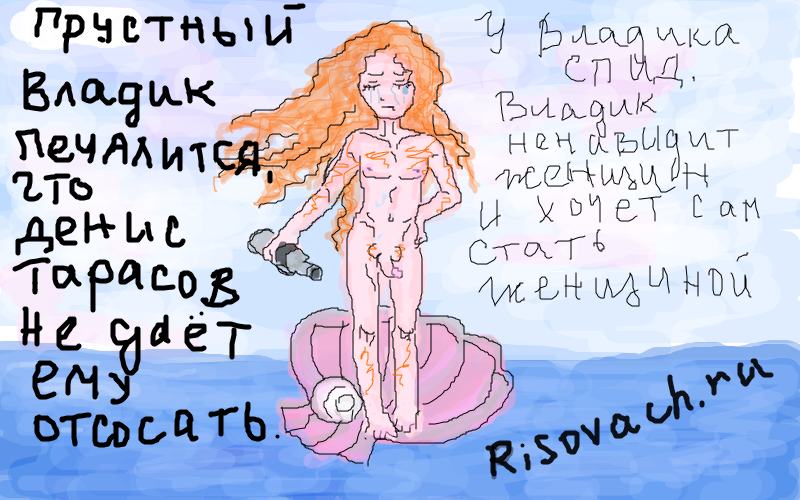 Прустный
Владик
печалится,
что
Денис
Тарасов
не даёт
ему
отсосать.
У Владика
СПИД.
Владик
ненавидит
женщин
и хочет сам
стать
женщиной
Risovach.ru